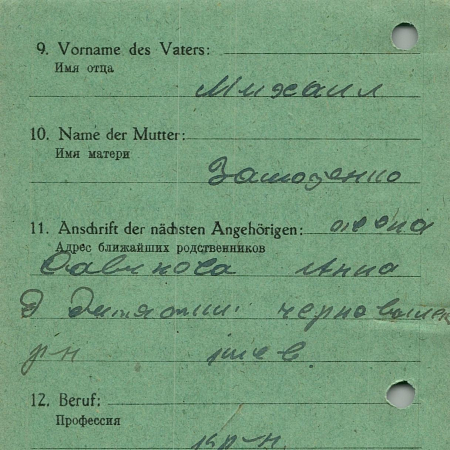 9. Vorname des Vaters:
Имя отца
Михаил
10. Name der Mutter:
Имя матери
11. Anschrift der nächsten Angehörigen: жена
Адрес ближайших родственников
Савинова Анна
р-н
12. Beruf:
Профессия
кр-н.